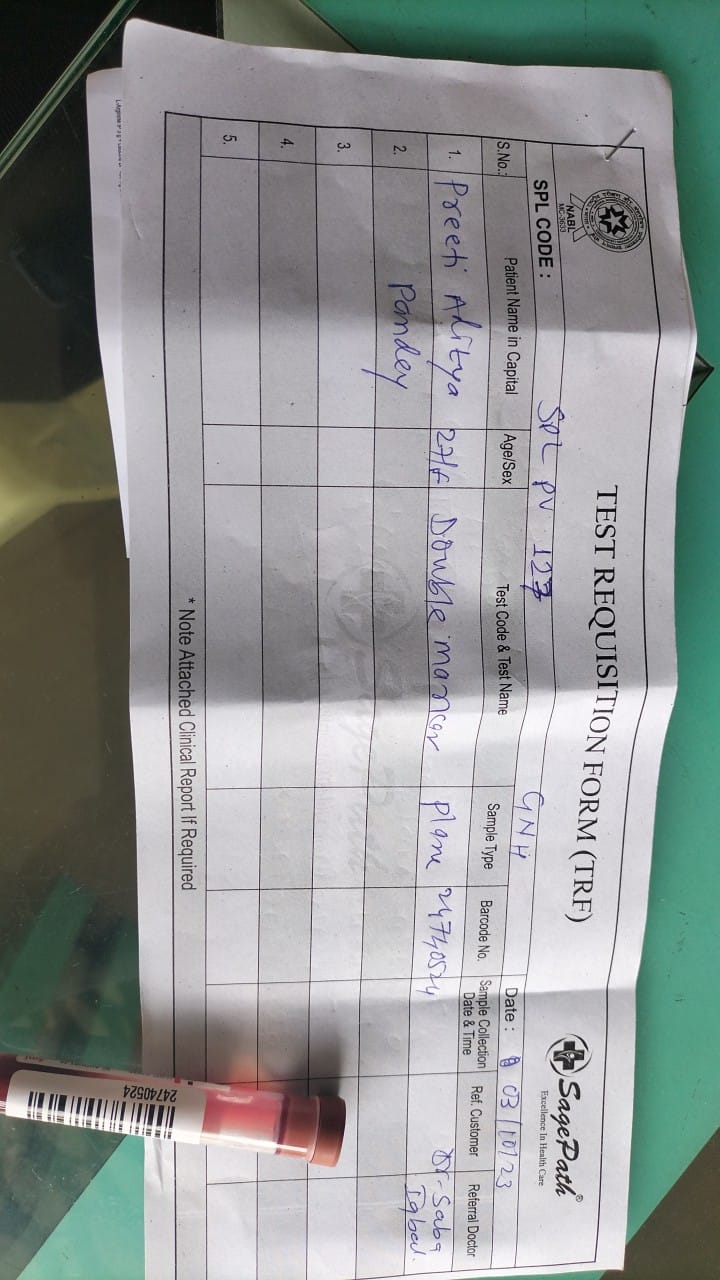 NABL
MC-3633
TEST REQUISITION FORM (TRF)
SagePath®
Excellence In Health Care
SPL CODE : SPL PV 127 GNH Date : 03/10/23
S.No.: Patient Name in Capital Age/Sex Test Code & Test Name Sample Type Barcode No. Sample Collection Date & Time Ref. Customer Referral Doctor
1. Preeti Aditya 27/F Double marker plane 24740524 Dr. Saba
Iqbal.
2. Pandey
3.
4.
5.
* Note Attached Clinical Report If Required
24740524